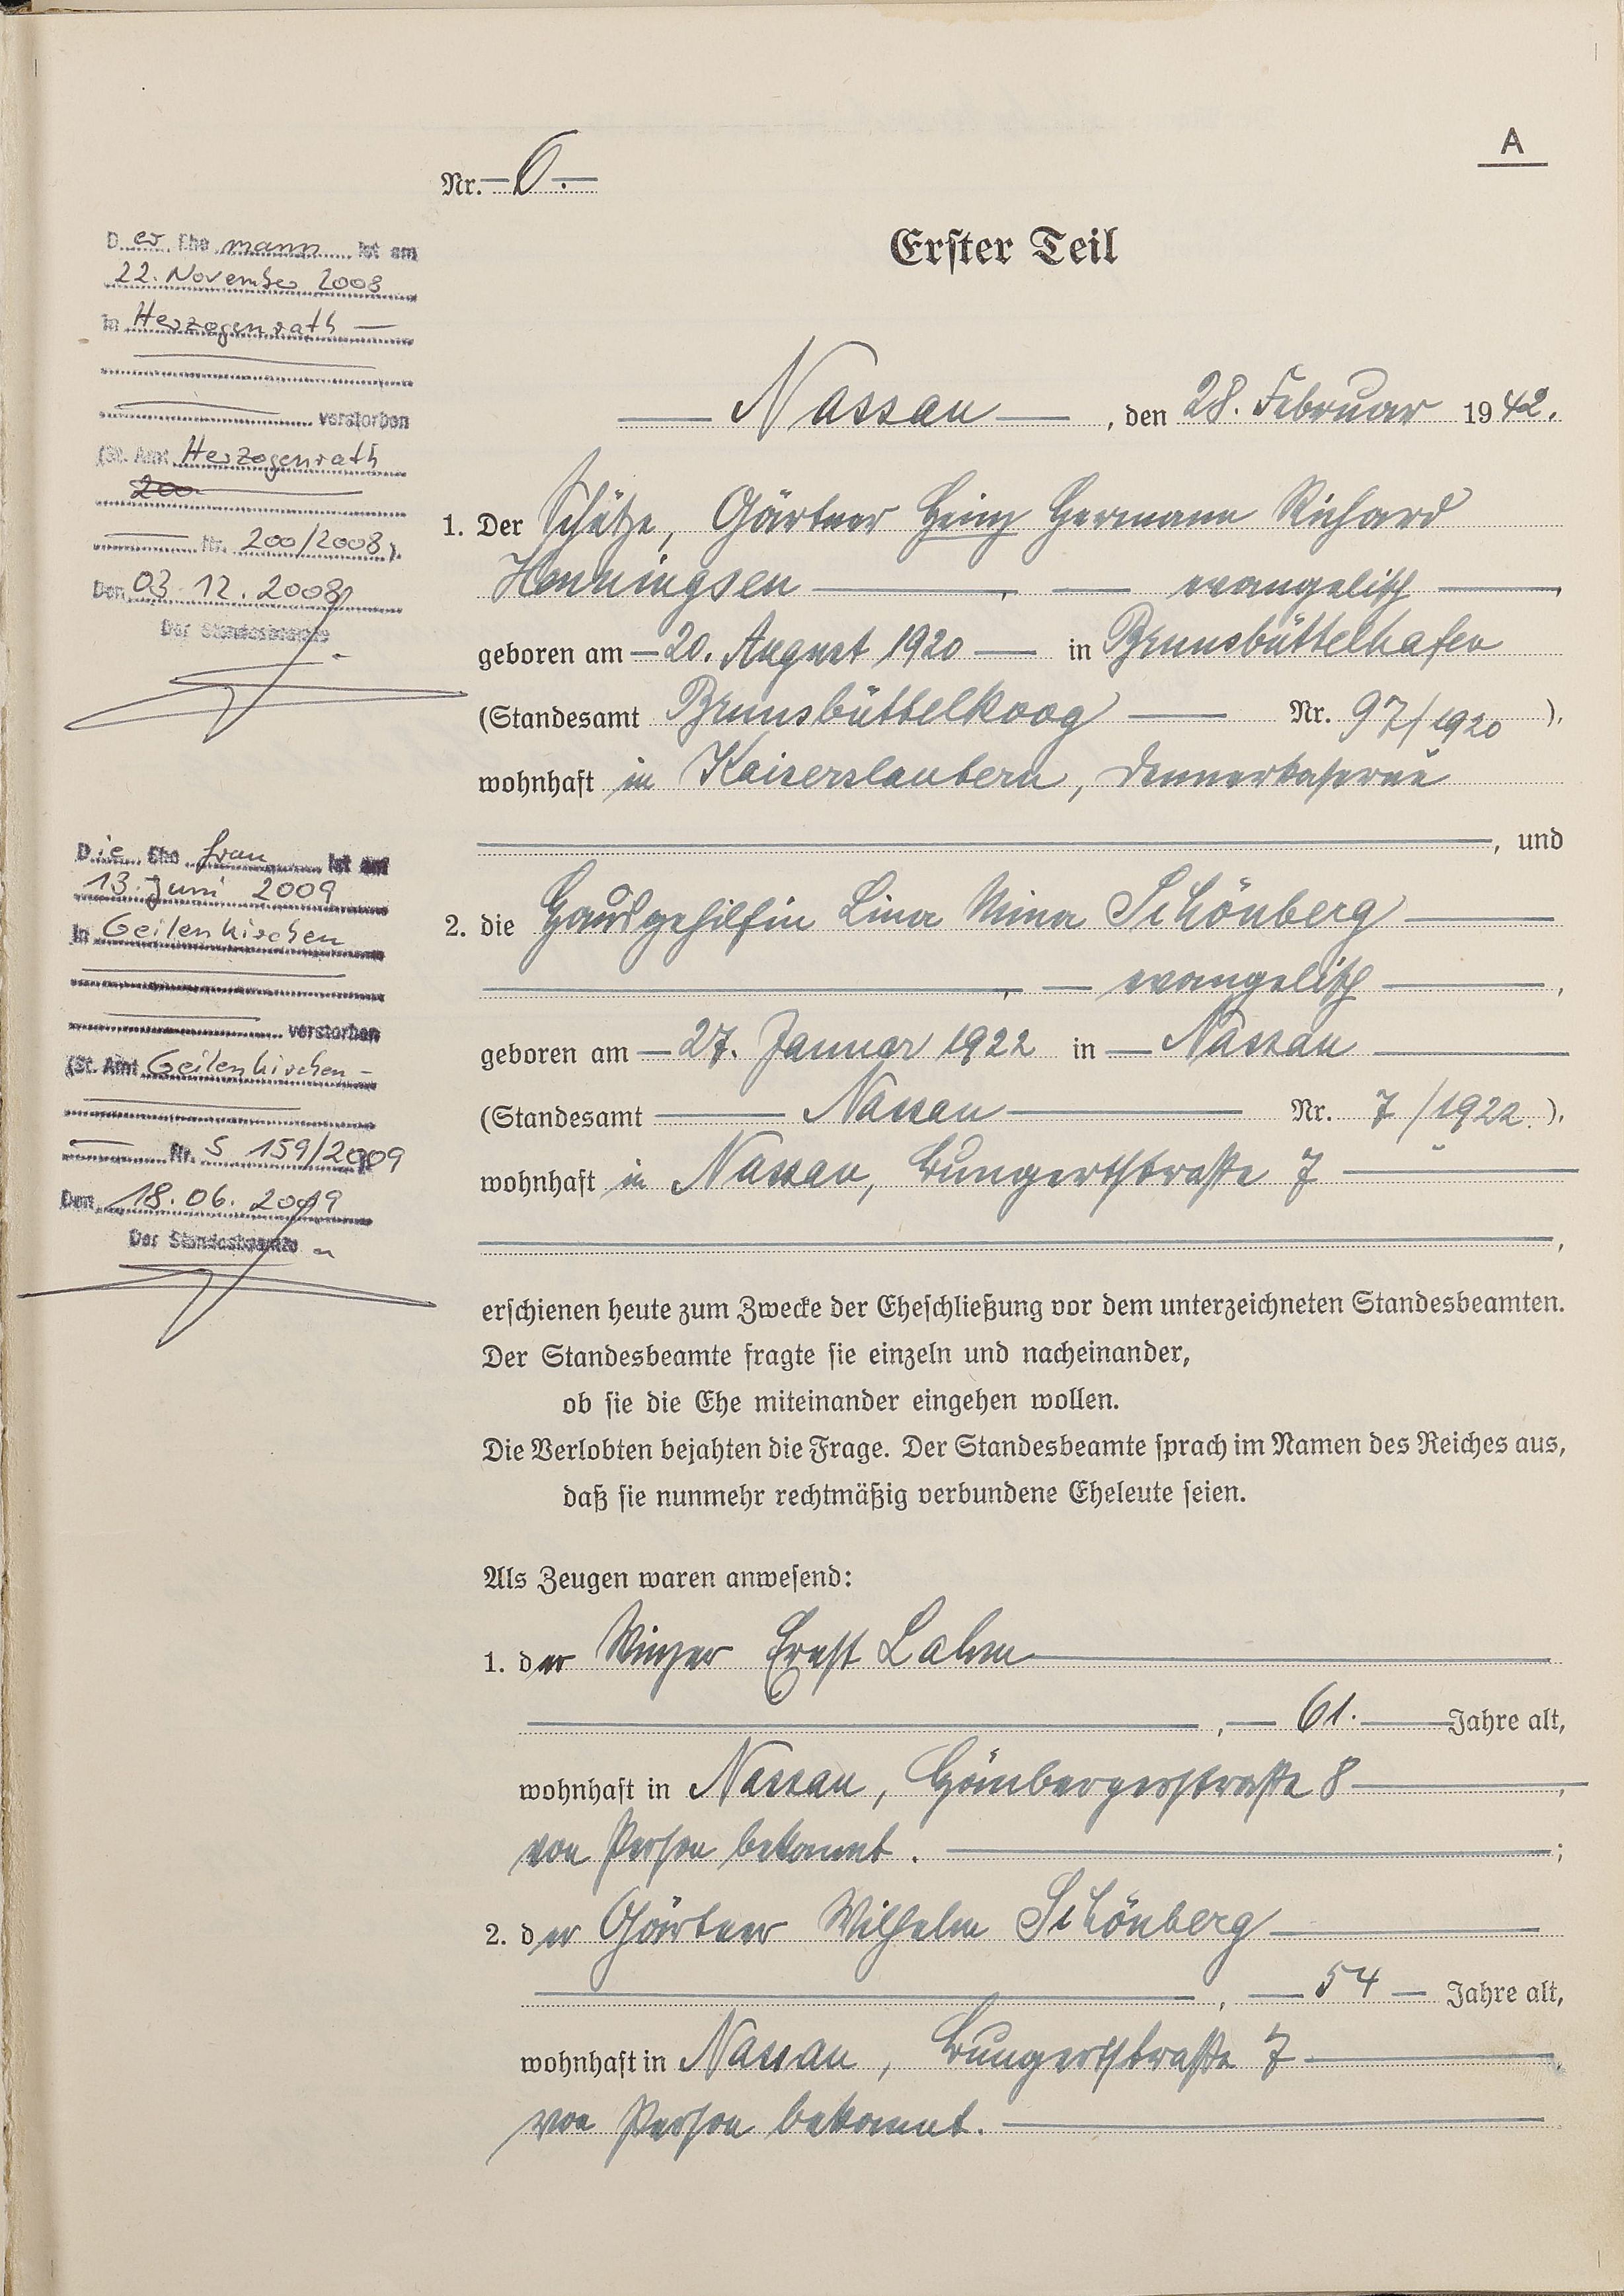 A
Nr. 6.
Erster Teil
Nassau, den 28. Februar 1942.
1. Der Schütze, Gärtner Heinz Hermann Richard
Henningsen, evangelisch,
geboren am 20. August 1920 in Brunsbüttelhafen
(Standesamt Brunsbüttelkoog Nr. 97/1920),
wohnhaft in Kaiserslautern, Dennerkaserne
, und
2. die Hausgehilfin Lina Mina Schönberg
, evangelisch,
geboren am 27. Januar 1922 in Nassau
(Standesamt Nassau Nr. 7/1922),
wohnhaft in Nassau, Bungertstraße 7
,
erschienen heute zum Zwecke der Eheschließung vor dem unterzeichneten Standesbeamten.
Der Standesbeamte fragte sie einzeln und nacheinander,
ob sie die Ehe miteinander eingehen wollen.
Die Verlobten bejahten die Frage. Der Standesbeamte sprach im Namen des Reiches aus,
daß sie nunmehr rechtmäßig verbundene Eheleute seien.
Als Zeugen waren anwesend:
1. der Winzer Ernst Lahm
, 61. Jahre alt,
wohnhaft in Nassau, Gömbergerstraße 8,
von Person bekannt. ;
2. der Gärtner Wilhelm Schönberg
, 54 Jahre alt,
wohnhaft in Nassau, Bungertstraße 7,
von Person bekannt.
Der Ehemann ist am
22. November 2008
in Herzogenrath
verstorben
(St. Amt Herzogenrath
200
Nr. 200/2008).
Den 03.12.2008
Der Standesbeamte
Die Ehefrau ist am
13. Juni 2009
in Geilenkirchen
verstorben
(St. Amt Geilenkirchen
Nr. S 159/2009
Den 18.06.2009
Der Standesbeamte